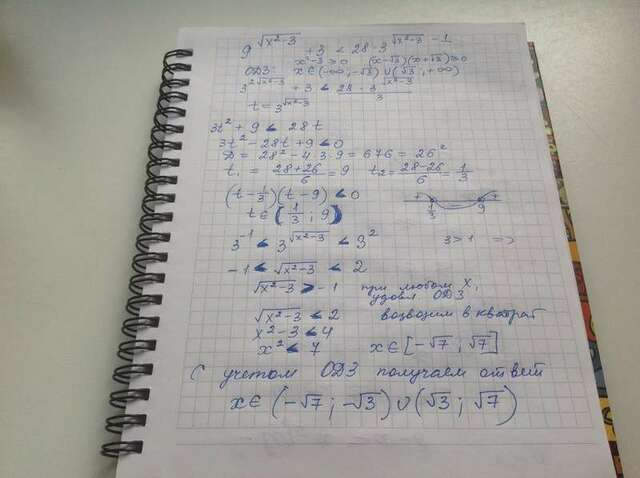 9^√(x²-3) + 3 < 28·3^(√(x²-3) - 1)
x²-3 ≥ 0 (x-√3)(x+√3) ≥ 0
ОДЗ: x ∈ (-∞; -√3) ∪ (√3; +∞)
3^(2√(x²-3)) + 3 < 28·3^√(x²-3) / 3
t = 3^√(x²-3)
3t² + 9 < 28t
3t² - 28t + 9 < 0
D = 28² - 4·3·9 = 676 = 26²
t₁ = (28+26)/6 = 9 t₂ = (28-26)/6 = 1/3
(t - 1/3)(t - 9) < 0
+ - + 1/3 9
t ∈ (1/3; 9)
3⁻¹ < 3^√(x²-3) < 3² 3 > 1 =>
-1 < √(x²-3) < 2
√(x²-3) > -1 при любом x, удовл ОДЗ
√(x²-3) < 2 возводим в квадрат
x² - 3 < 4
x² < 7 x ∈ [-√7; √7]
С учетом ОДЗ получаем ответ
x ∈ (-√7; -√3) ∪ (√3; √7)